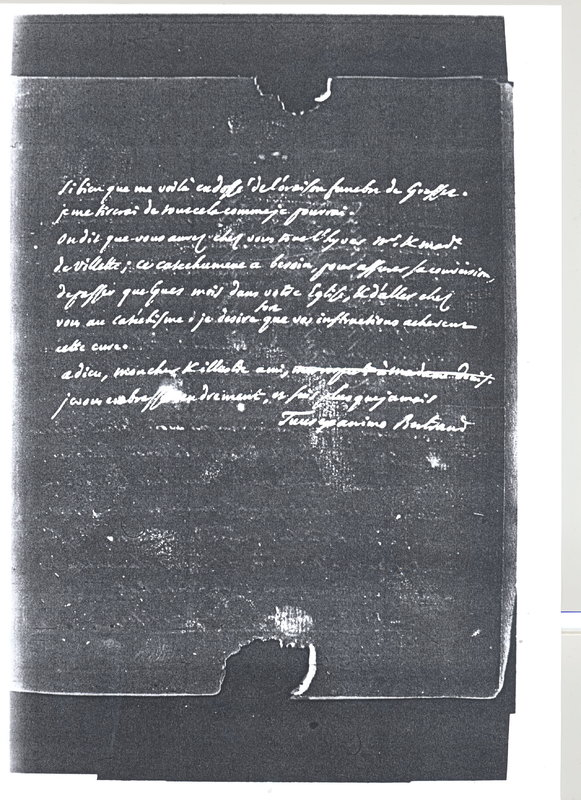 si bien que me voilà endossé de l'oraison funebre de Gresset.
je me tirerai de tout cela comme je pourrai.
On dit que vous aurez chez vous tout l'hyver Mr. & Made
de Villette; ce catechumene a besoin, pour assurer sa conversion,
de passer quelques mois dans votre Eglise, & d'aller chez
vous au catechisme; je desire fort que vos instructions achevent
cette cure.
adieu, mon cher & illustre ami, mon respect à madame Denis.
je vous embrasse tendrement, et suis plus que jamais
Tuus ex animo Bertrand